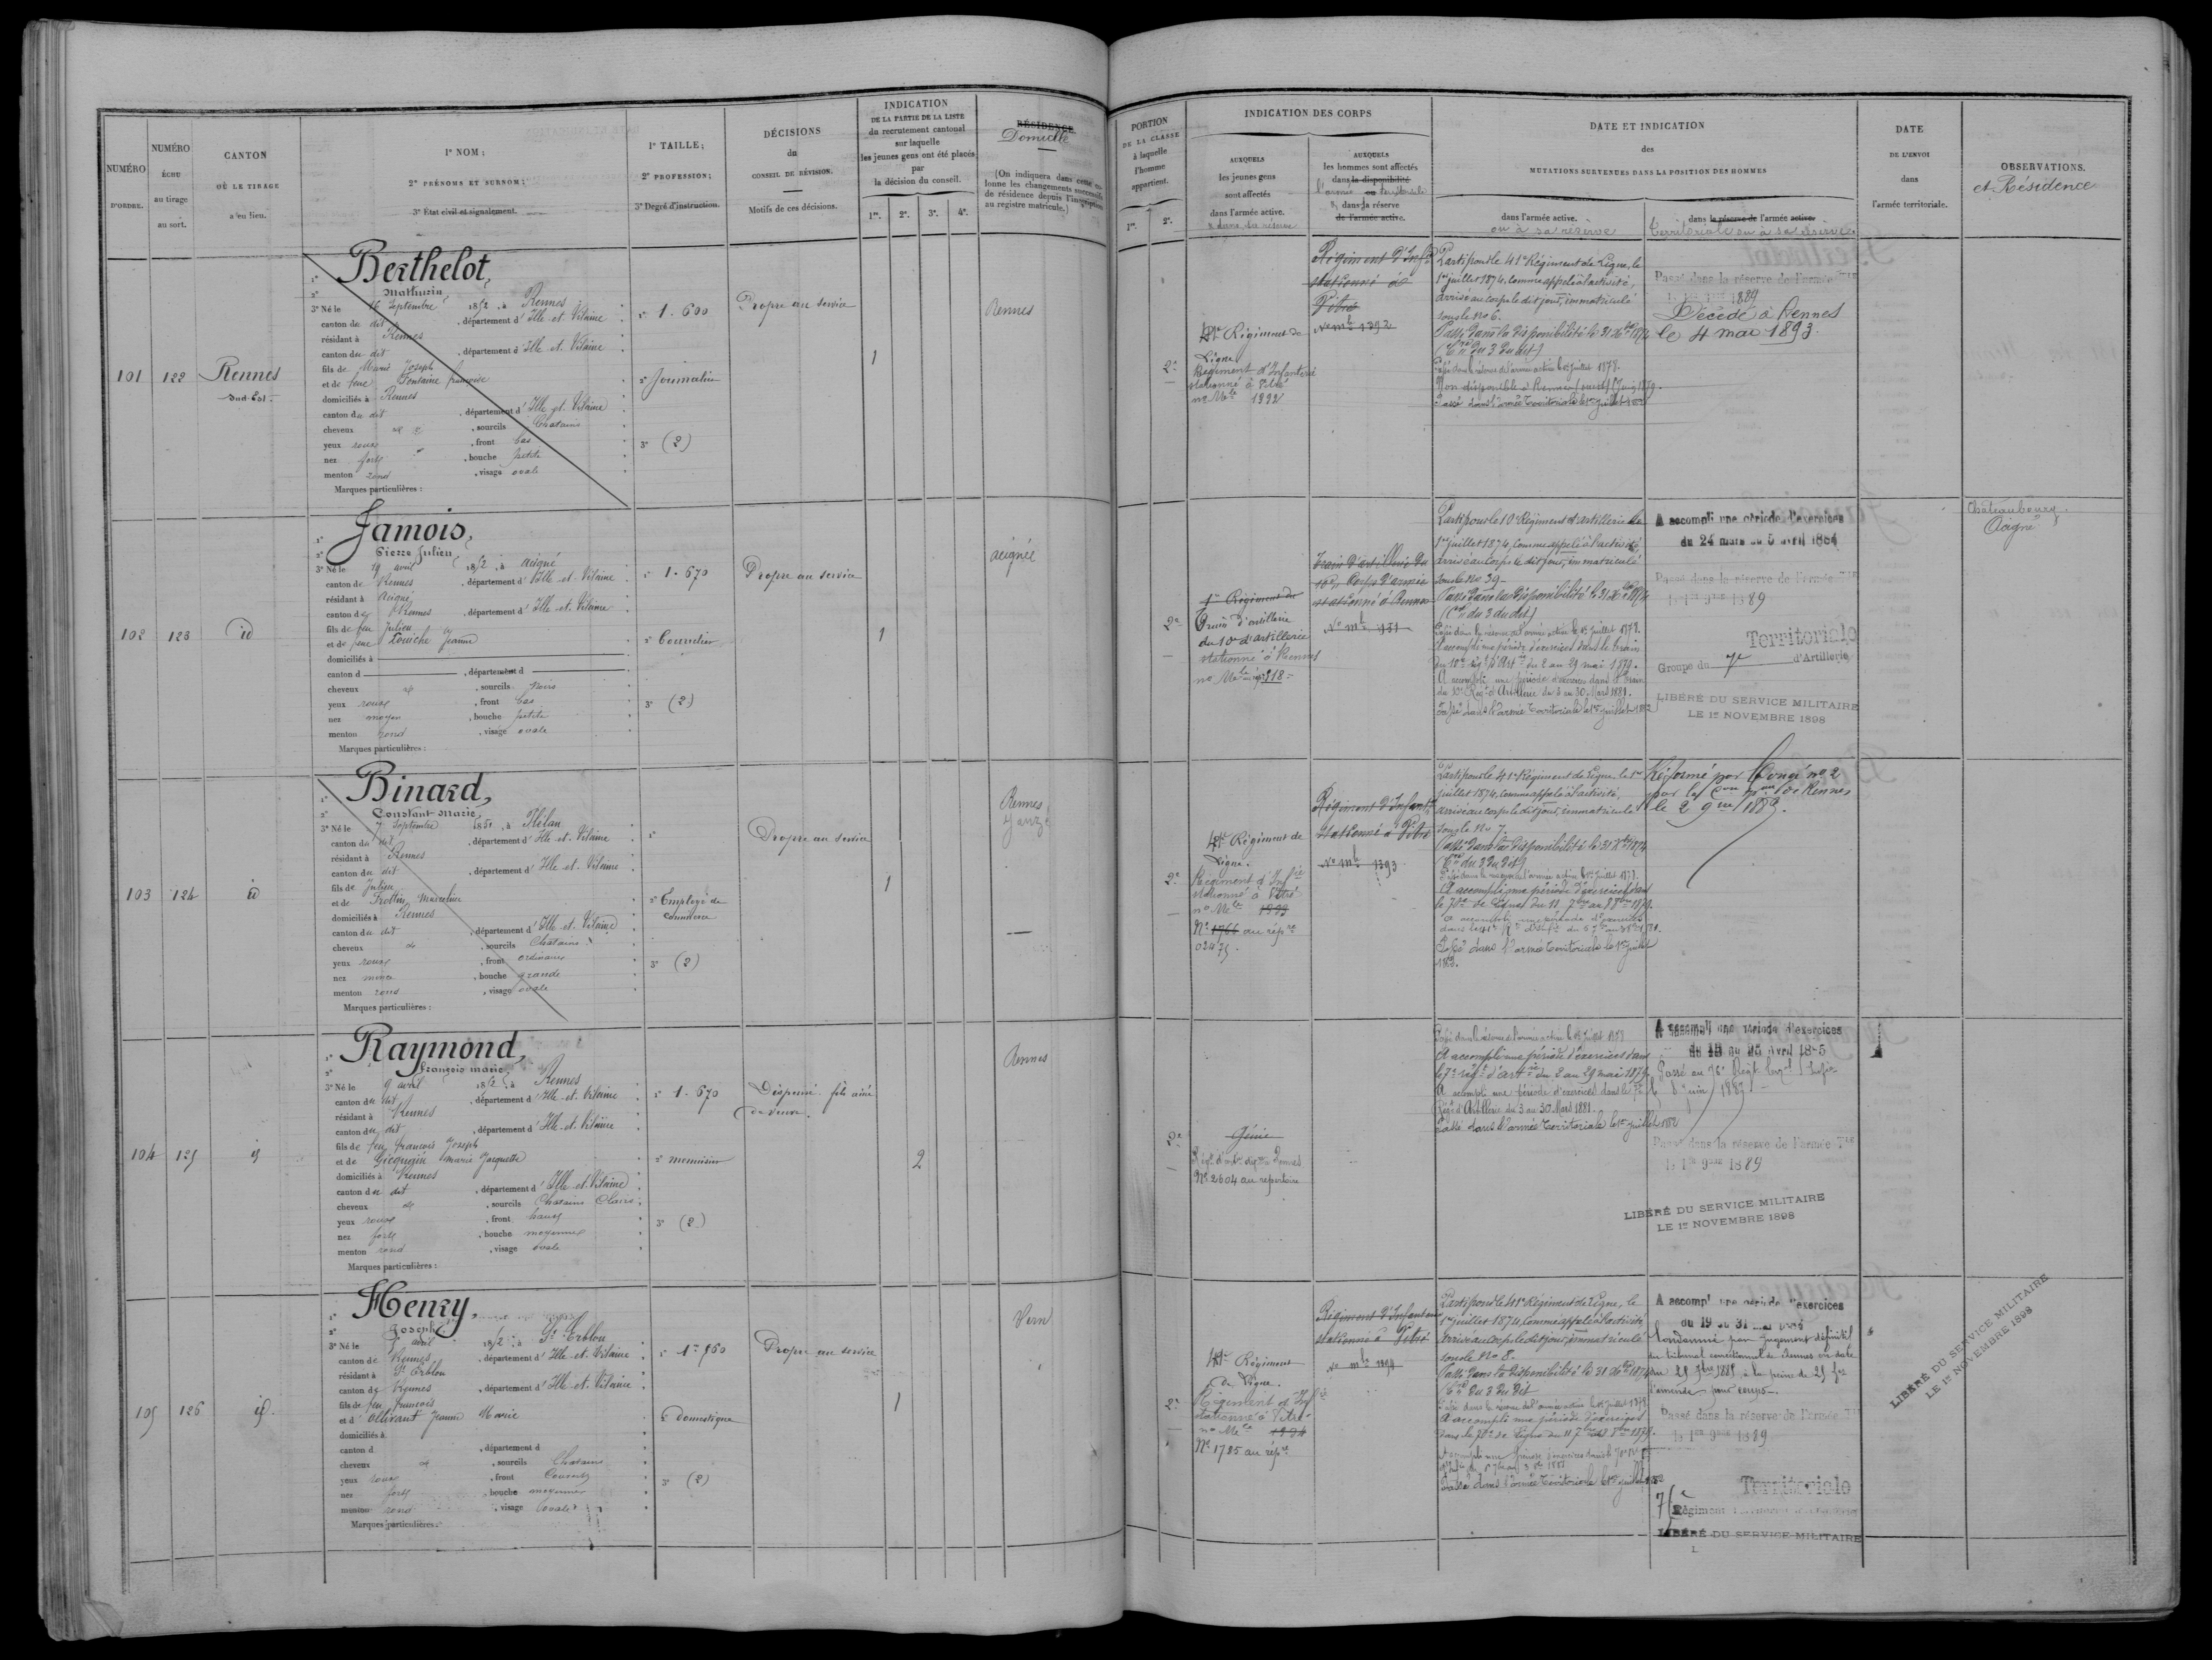 NUMÉRO
D'ORDRE.
NUMÉRO
échu
au tirage
au sort.
CANTON
OÙ LE TIRAGE
a eu lieu.
1º NOM;
2º PRÉNOMS ET SURNOM;
3º État civil et signalement.
1º TAILLE;
2º PROFESSION;
3º Degré d'instruction.
DÉCISIONS
du
CONSEIL DE RÉVISION.
Motifs de ces décisions.
INDICATION
DE LA PARTIE DE LA LISTE
du recrutement cantonal
sur laquelle
les jeunes gens ont été placés
par
la décision du conseil.
1re. 2e. 3e. 4e.
RÉSIDENCE
Domicile
(On indiquera dans cette colonne les changements successifs de résidence depuis l'inscription au registre matricule.)
PORTION
DE LA CLASSE
à laquelle
l'homme
appartient.
1re. 2e.
INDICATION DES CORPS
AUXQUELS
les jeunes gens
sont affectés
dans l'armée active.
AUXQUELS
les hommes sont affectés
dans la disponibilité
l'armée ou territoriale
dans la réserve
de l'armée active.
DATE ET INDICATION
des
MUTATIONS SURVENUES DANS LA POSITION DES HOMMES
dans l'armée active.
ou à sa réserve
dans la réserve de l'armée active.
territoriale ou à sa réserve
DATE
DE L'ENVOI
dans
l'armée territoriale.
OBSERVATIONS.
et Résidence
101
122
Rennes
Sud-Est
Berthelot,
Mathurin
3º Né le 16 Septembre 1852, à Rennes
canton du dit, département d'Ille-et-Vilaine
résidant à Rennes
canton du dit, département d'Ille-et-Vilaine
fils de Marie Joseph
et de feue Fontaine françoise
domiciliés à Rennes
canton du dit, département d'Ille-et-Vilaine
cheveux et, sourcils Chatains
yeux roux, front bas
nez fort, bouche petite
menton rond, visage ovale
Marques particulières:
1º 1.600
2º Journalier
3º (2)
Propre au service
1
Rennes
2e
41e Régiment de
Ligne
Régiment d'Infanterie
stationné à Vitré
no Mle 1392
Régiment d'Infie
stationné à
Vitré
No mle 1392
Parti pour le 41e Régiment de Ligne, le
1er juillet 1874, comme appelé à l'activité,
arrivé au corps le dit jour, immatriculé
sous le no 6.
Passé dans la disponibilité le 31 Xbre 1874
(Cre du 3 du dit)
Passé dans la réserve de l'armée active le 1er juillet 1878.
Passé dans l'armée territoriale le 1er juillet
Passé dans la réserve de l'armée Tle
le 1er 9bre 1889
Décédé à Rennes
le 4 mai 1893.
102
123
id
Jamois,
Pierre Julien
3º Né le 19 avril 1852, à acigné
canton de Rennes, département d'Ille-et-Vilaine
résidant à Acigné
canton de Rennes, département d'Ille-et-Vilaine
fils de feu Julien
et de feue Louiche Jeanne
domiciliés à
canton d, département d
cheveux et, sourcils Noirs
yeux roux, front bas
nez moyen, bouche petite
menton rond, visage ovale
Marques particulières:
1º 1.670
2º Bourrelier
3º (2)
Propre au service
1
acignée
2e
1er Régiment du
Train d'artillerie
du 10e d'artillerie
stationné à Rennes
Train d'artillerie du
10e Corps d'armée
stationné à Rennes
No mle 931
Parti pour le 10e Régiment d'artillerie le
1er juillet 1874, comme appelé à l'activité
arrivé au corps le dit jour, immatriculé
sous le no 39.
Passé dans la disponibilité le 31 Xbre 1874
(Cre du 3 du dit)
Passé dans la réserve de l'armée active le 1er juillet 1878.
A accompli une période d'exercices dans le train
du 10e régt d'Artie du 2 au 29 mai 1879.
A accompli une période d'exercices dans le train
du 10e Régt d'Artillerie du 3 au 30 Mars 1881.
Passé dans l'armée territoriale le 1er juillet 1882
A accompli une période d'exercices
du 24 mars au 5 avril 1884
Passé dans la réserve de l'armée Tle
le 1er 9bre 1889
Territoriale
Groupe du 7e d'Artillerie
LIBÉRÉ DU SERVICE MILITAIRE
LE 1er NOVEMBRE 1898
Châteaubourg
Acigné
103
124
id
Binard,
Constant Marie
3º Né le 7 Septembre 1852, à Mélan
canton du dit, département d'Ille-et-Vilaine
résidant à Rennes
canton du dit, département d'Ille-et-Vilaine
fils de Julien
et de Frottin Marceline
domiciliés à Rennes
canton du dit, département d'Ille-et-Vilaine
cheveux et, sourcils Chatains
yeux roux, front ordinaire
nez mince, bouche grande
menton rond, visage ovale
Marques particulières:
1º
2º Employé de
commerce
3º (2)
Propre au service
1
Rennes
Janzé
2e
41e Régiment de
Ligne.
Régiment d'Infie
stationné à Vitré
no Mle 1393
No 1766 au répre
Régiment d'Infantie
stationné à Vitré
No mle 1393
Parti pour le 41e Régiment de Ligne, le 1er
juillet 1874, comme appelé à l'activité,
arrivé au corps le dit jour, immatriculé
sous le No 7.
Passé dans la disponibilité le 31 Xbre 1874
(Cre du 3 du dit)
Passé dans la réserve de l'armée active le 1er juillet 1878.
A accompli une période d'exercices dans
le 70e de Ligne du 11 7bre au 8 8bre 1879.
A accompli une période d'exercices
Passé dans l'armée territoriale le 1er juillet
1882.
Réformé par Congé no 2
par la Con de Rennes
le 2 9bre 1889.
104
125
id
Raymond,
François marie
3º Né le 9 avril 1852, à Rennes
canton du dit, département d'Ille-et-Vilaine
résidant à Rennes
canton du dit, département d'Ille-et-Vilaine
fils de feu François Joseph
et de Gicquiaux Marie Jacquette
domiciliés à Rennes
canton du dit, département d'Ille-et-Vilaine
cheveux et, sourcils Chatains Clairs
yeux roux, front haut
nez fort, bouche moyenne
menton rond, visage ovale
Marques particulières:
1º 1.670
2º menuisier
3º (2)
Dispensé fils aîné
de veuve.
2
Rennes
2e
Génie
No 2604 au répertoire
Passé dans la réserve de l'armée active le 1er juillet 1878
A accompli une période d'exercices dans
le 7e régt d'artie du 2 au 29 mai 1879.
A accompli une période d'exercices dans le 7e
Régt d'Artillerie du 3 au 30 Mars 1881.
Passé dans l'armée territoriale le 1er juillet 1882
A accompli une période d'exercices
du 13 au 25 avril 1885
Passé au 76e Régt terral d'Infie
le 8 juin 1889
Passé dans la réserve de l'armée Tle
le 1er 9bre 1889
LIBÉRÉ DU SERVICE MILITAIRE
LE 1er NOVEMBRE 1898
105
126
id.
Henry,
Joseph
3º Né le 7 avril 1852, à St Erblon
canton de Rennes, département d'Ille-et-Vilaine
résidant à St Erblon
canton de Rennes, département d'Ille-et-Vilaine
fils de feu François
et d'Ollivant Jeanne Marie
domiciliés à
canton d, département d
cheveux et, sourcils Chatains
yeux roux, front Couvert
nez fort, bouche moyenne
menton rond, visage ovale
Marques particulières:
1º 1.560
2º Domestique
3º (2)
Propre au service
1
Vern
2e
41e Régiment
de Ligne.
Régiment d'Infie
stationné à Vitré
no Mle 1394
No 1785 au répre
Régiment d'Infanterie
stationné à Vitré
No mle 1394
Parti pour le 41e Régiment de Ligne, le
1er juillet 1874, comme appelé à l'activité
arrivé au corps le dit jour, immatriculé
sous le No 8.
Passé dans la disponibilité le 31 Xbre 1874
(Cre du 3 du dit
Passé dans la réserve de l'armée active le 1er juillet 1878.
A accompli une période d'exercices
dans le 70e de Ligne du 11 7bre au 8 8bre 1879.
Passé dans l'armée territoriale le 1er juillet 1882
A accompli une période d'exercices
du 19 au 31
Condamné par jugement définitif
du tribunal correctionnel de Rennes en date
du 25 7bre 1885 à la peine de 25 frs
d'amende pour coups.
Passé dans la réserve de l'armée Tle
le 1er 9bre 1889
Territoriale
76e Régiment
LIBÉRÉ DU SERVICE MILITAIRE
LIBÉRÉ DU SERVICE MILITAIRE
LE 1er NOVEMBRE 1898